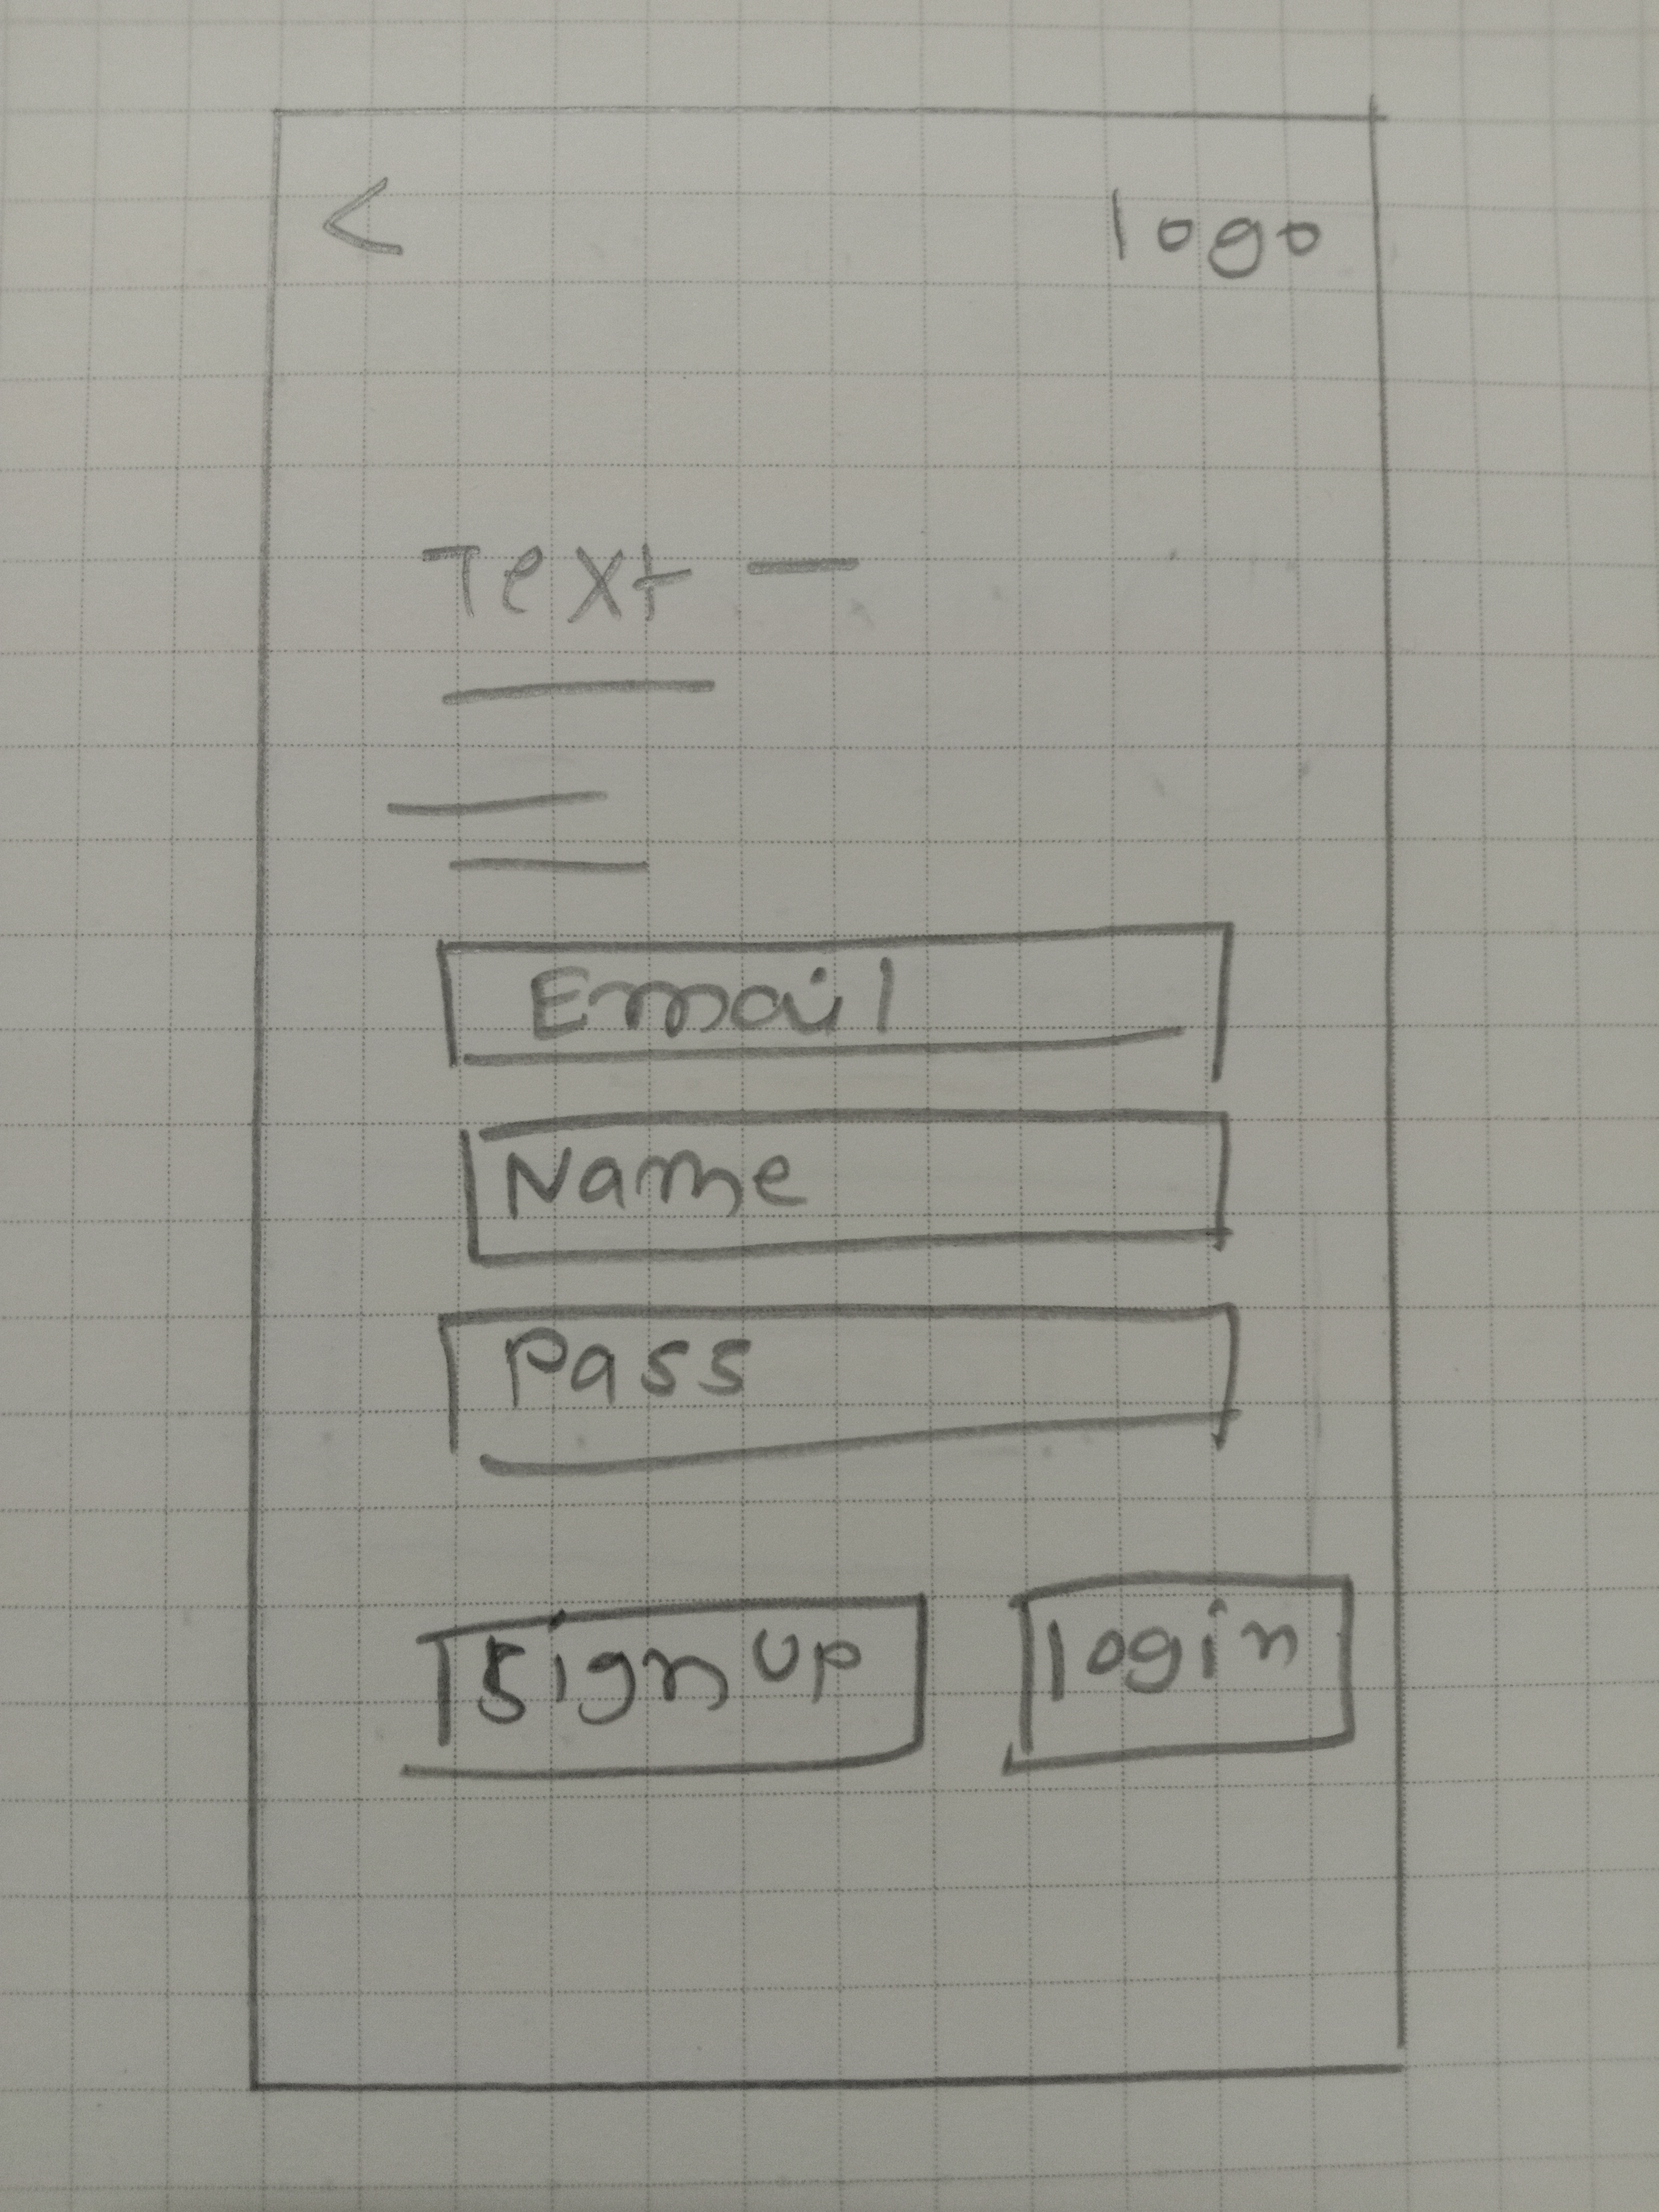 < logo
Text —
Email
Name
Pass
Sign up login